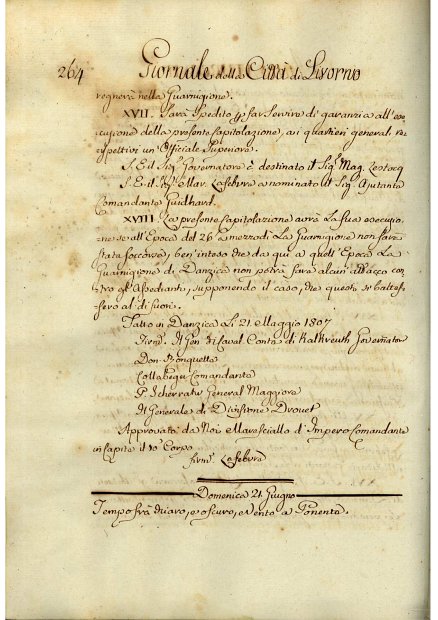 264
Giornale della Città di Livorno
regnerà nella Guarnigione.
XVII. Sarà spedito per far servire di garanzia all'ese=
cuzione della presente Capitolazione, ai quartieri generali re=
spettivi un'Officiale Superiore.
S. E. il Sig.r Governatore è destinato il Sig.r Mag. Lestocq
S. E. il Sig.r Mar. Lefebvre a nominato il Sig.r Ajutante
Comandante Guidhard.
XVIII. La presente Capitolazione avrà la sua esecuzio=
ne se all'Epoca del 26 a mezzodì La Guarnigione non sarà
stata soccorsa, ben'inteso che da qui a quell'Epoca La
Guarnigione di Danzica non potrà fare alcun'attacco con=
tro gl'Assedianti, supponendo il caso, che questi si battes=
sero al di fuori.
Fatto in Danzica Li 21 Maggio 1807
Firm. Il Gen. di Caval. Conte di Kalkreuth Governatore
Don Bonquette
Collabegu Comandante
P. Scherrate General Maggiore
Il Generale di Divisione Drouet
Approvato da Noi Maresciallo d'Impero Comandante
in Capite il 10.° Corpo
Firm. Lefebvre
Domenica 21 Giugno
Tempo frà chiaro, e oscuro, e Vento a Ponente.